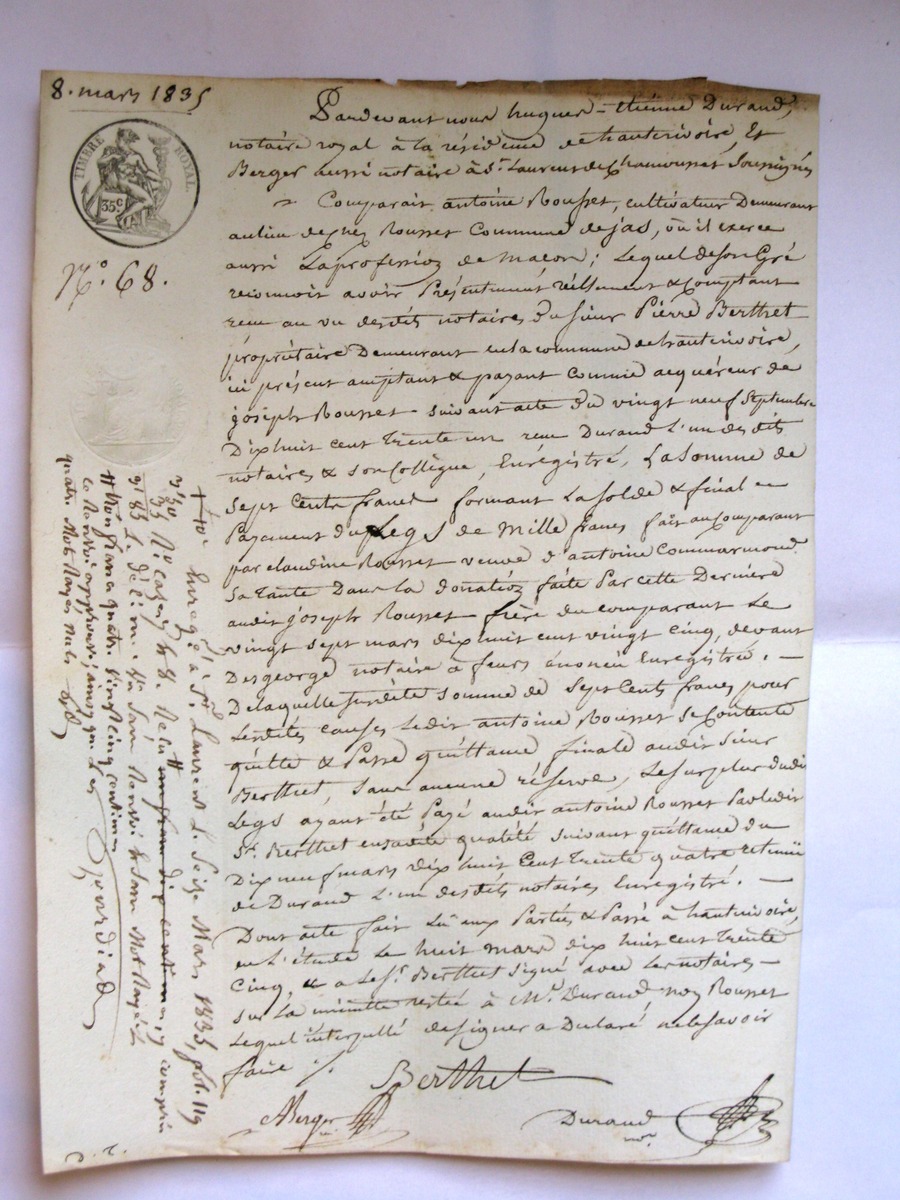 8. mars 1835
TIMBRE ROYAL.
35c.
N.o 68.
Pardevant nous hugues-Etiénne Durand,
notaire royal à la résidence de hauterivoire, Et
Berger aussi notaire à St. Laurent de Chamousset Soussignés
Comparait antoine Rousset, cultivateur Demeurant
au lieu de chez Rousset Commune de jas, où il exerce
aussi La profession de Macon; Lequel de son Gré
reconnoit avoir Présentement réellement & Comptant
recu au vu desdits notaires Du Sieur Pierre Berthet
propriétaire Demeurant en la commune de hauterivoire,
ici présent acceptant & payant Comme acquéreur de
joseph Rousset suivant acte du vingt neuf Septembre
Dix huit cent trente un recu Durand L'un desdits
notaires & son Collègue, Enrégistré, La Somme de
Sept Cents francs formant La solde & final
Payement du Legs de Mille francs fait au Comparant
par claudine Rousset veuve d'antoine Commarmond
Sa tante Dans la donation faite Par cette Dernière
audit joseph Rousset frère du comparant Le
vingt sept mars dix huit cent vingt cinq, devant
Desgeorge notaire à feurs énoncée Enregistrée. —
De laquelle susdite somme de sept Cents francs pour
Lesdites causes Ledit antoine Rousset se Contente
quitte & Passe quittance finale audit Sieur
Berthet, Sans aucune réserve, Le surplus dudit
Legs ayant été Payé audit antoine Rousset Par ledit
Sr. Berthet en sadite qualité suivant quittance du
Dix neuf mars dix huit Cent trente quatre retenue
de Durand L'un desdits notaires Enregistré. —
Dont acte fait Lu aux Parties & Passé à hauterivoire,
en L'étude Le huit mars dix huit cent trente
Cinq, & a Le Sr. Berthet signé avec Les notaires —
sur La minutte restée à Me. Durand non Rousset
Lequel interpellé de signer a Déclaré ne le savoir
faire ./.
Berthet
Berger
Durand
nre.
Enregé. à St. Laurent L. Seize Mars 1835, fol. 119
Vo. Cazes 7 & 8. Reçu un franc dix centimes compris
L. décime. Un Sans Renvoi & Sans Mot Rayé
trois francs quatre vingt cinq centimes
Le Renvoi approuvé, ainsi que Les
quatre Mots Rayés nuls
Gourdiad